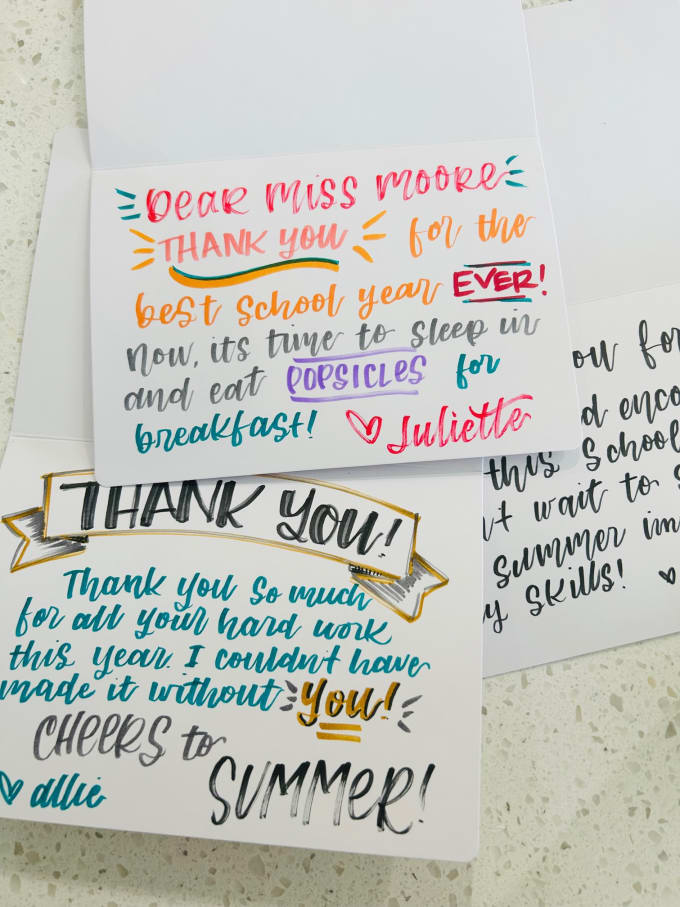 DEAR MISS MOORE
THANK YOU for the
best school year EVER!
now, it's time to sleep in
and eat POPSICLES for
breakfast! Juliette
THANK YOU!
Thank you so much
for all your hard work
this year. I couldn't have
made it without you!
CHEERS to
SUMMER!
allie
for
this school
wait to
summer
skills!